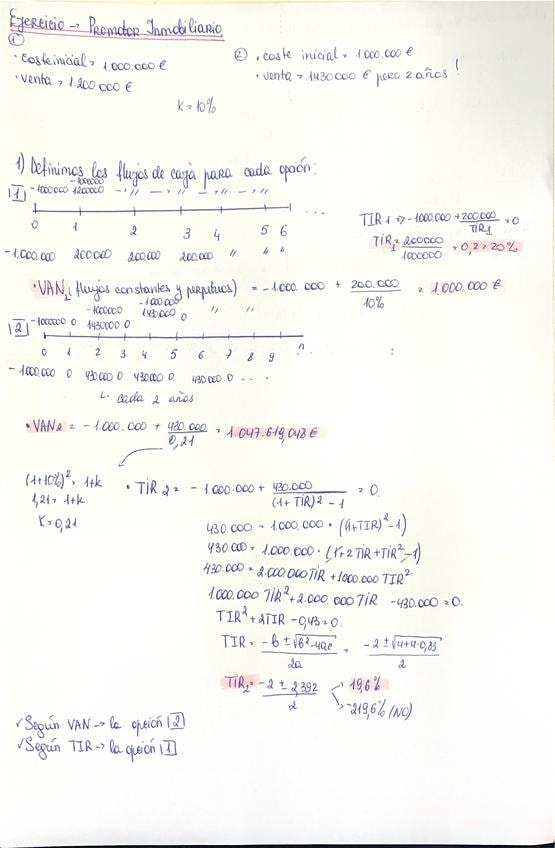 Ejercicio → Promotor Inmobiliario
①
• coste inicial = 1.000.000 €
• venta = 1.200.000 €
② • coste inicial = 1.000.000 €
• venta = 1430000 € pero 2 años!
K = 10%
1) Definimos los flujos de caja para cada opción:
1
-1000000
-1000000
1200000 -"- -"- -"- -"-
0 1 2 3 4 5 6 ...
-1.000.000 200.000 200.000 200.000 " " "
TIR 1 => -1000000 + 200.000 / TIR1 = 0
TIR1 = 200000 / 1000000 = 0,2 = 20%
• VAN1 (flujos constantes y perpetuos) = -1.000.000 + 200.000 / 10% = 1.000.000 €
-1000000 -1000000
2 -1000000 0 1430000 0 1430000 0 " "
0 1 2 3 4 5 6 7 8 9 n
-1000000 0 430000 0 430000 0 430000 0 ...
↳ cada 2 años
• VAN2 = -1.000.000 + 430.000 / 0,21 = 1.047.619,048 €
(1+10%)² = 1+k
1,21 = 1+k
K = 0,21
• TIR 2 = -1.000.000 + 430.000 / (1+TIR)² - 1 = 0
430.000 = 1.000.000 · ((1+TIR)² - 1)
430.000 = 1.000.000 · (1+2TIR+TIR² - 1)
430.000 = 2.000.000 TIR + 1000.000 TIR²
1000.000 TIR² + 2.000.000 TIR - 430.000 = 0.
TIR² + 2TIR - 0,43 = 0.
TIR = -b ± √b²-4ac / 2a = -2 ± √4+4·0,43 / 2
TIR2 = -2 ± 2,392 / 2 → 19,6%
→ -219,6% (NO)
✓ Según VAN → la opción 2
✓ Según TIR → la opción 1